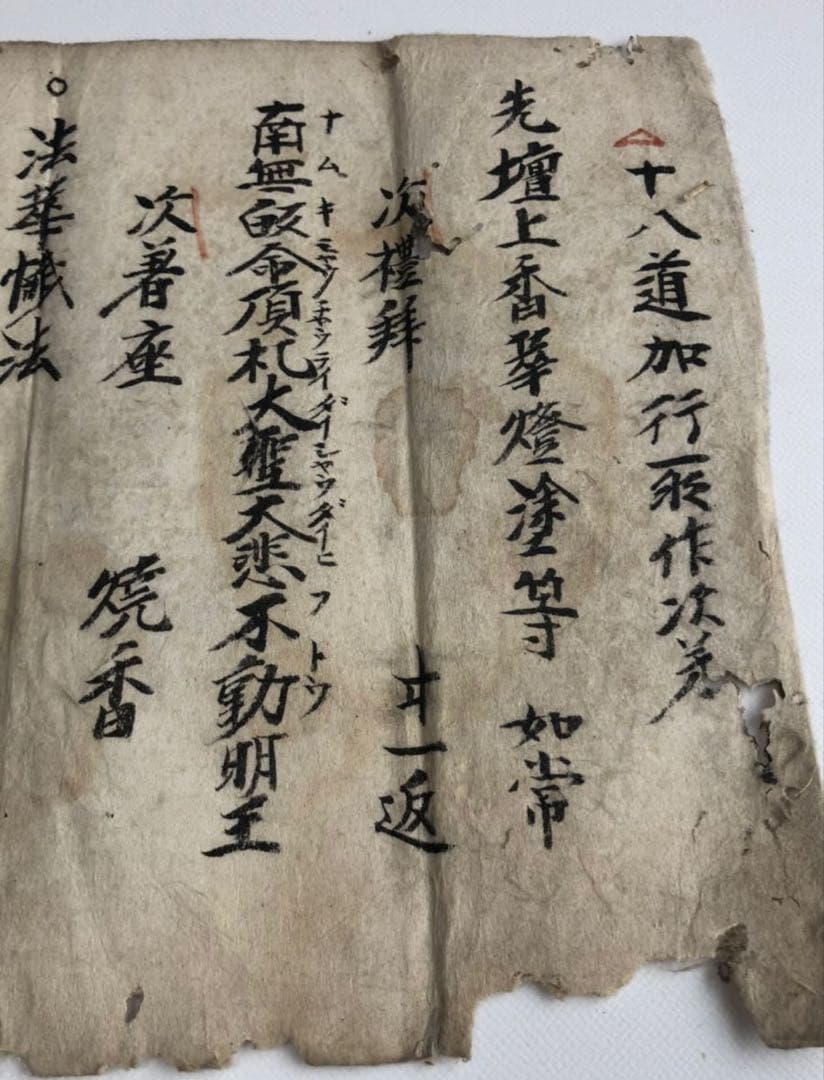 十八道加行所作次第
先壇上香華燈塗等 如常
次禮拜 廿一返
ナムキミャウチャウライダイシャウダイヒフトウ
南無皈命頂礼大聖大悲不動明王
次著座 燒香
法華懺法